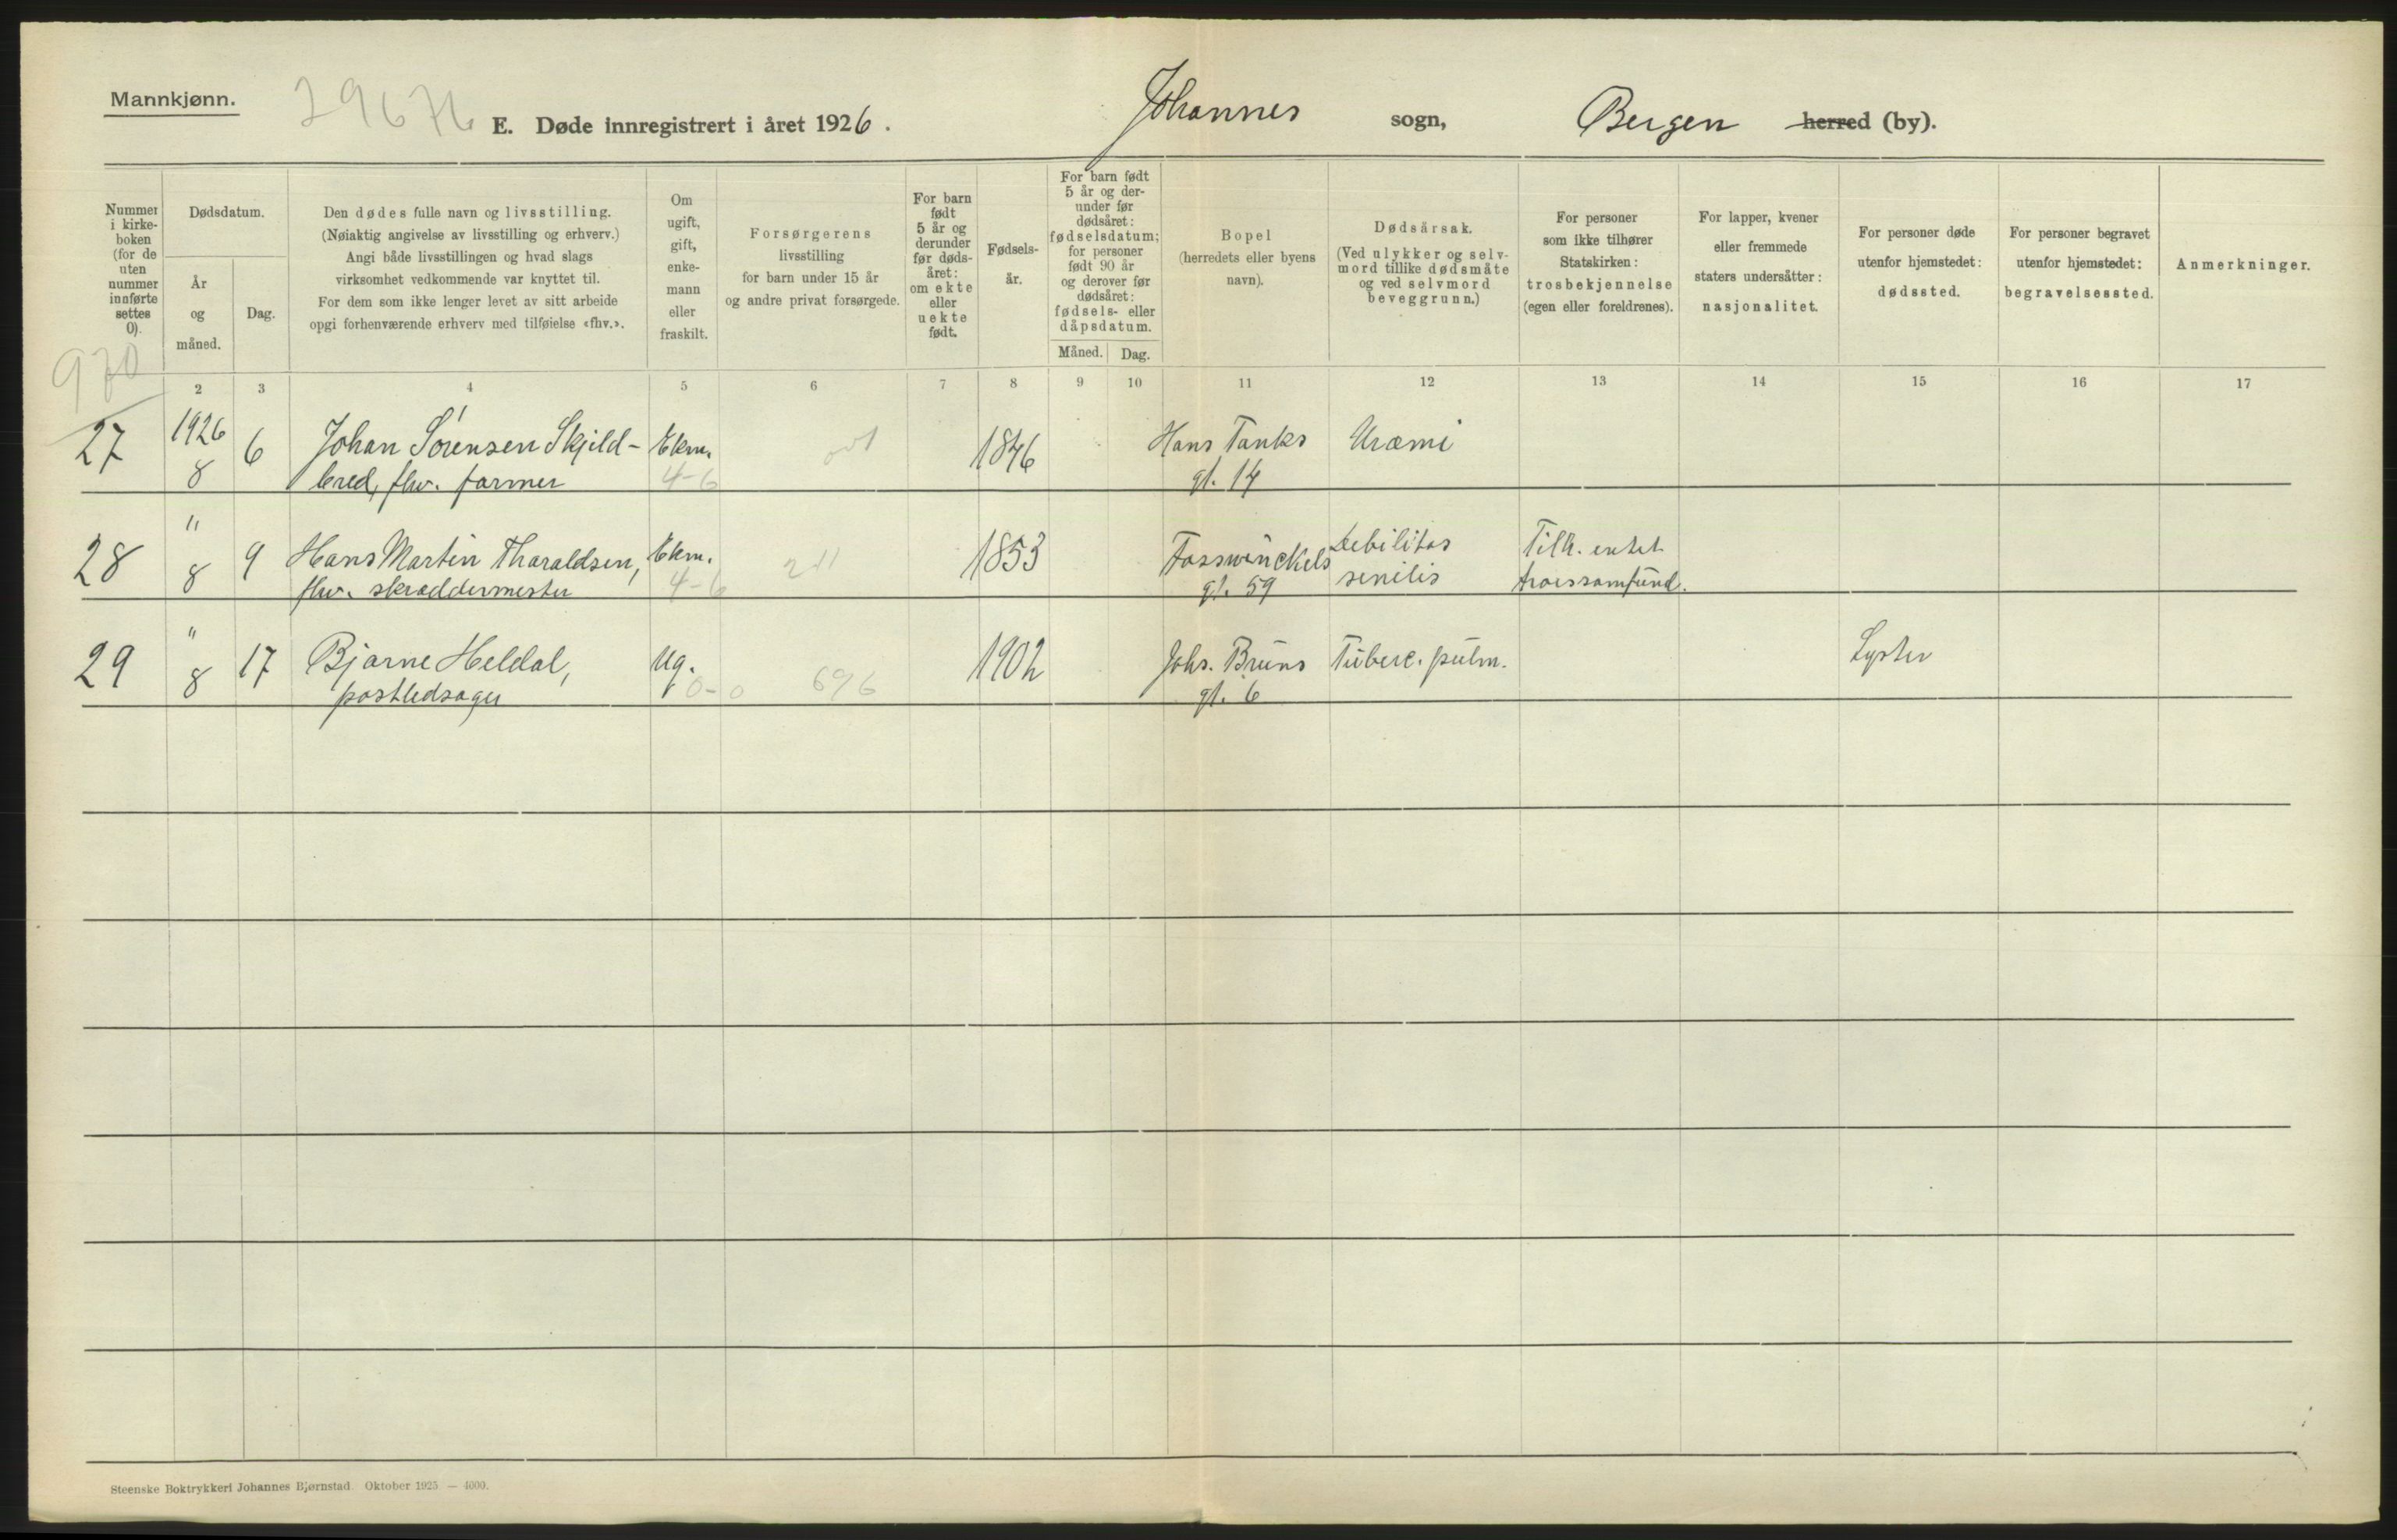 Mannkjønn.
29676
E. Døde innregistrert i året 1926.
Johannes sogn, Bergen herred (by).
Nummer i kirke-boken (for de uten nummer innførte settes 0).
Dødsdatum.
År og måned.
Dag.
Den dødes fulle navn og livsstilling.
(Nøiaktig angivelse av livsstilling og erhverv.)
Angi både livsstillingen og hvad slags
virksomhet vedkommende var knyttet til.
For dem som ikke lenger levet av sitt arbeide
opgi forhenværende erhverv med tilføielse «fhv.».
Om ugift, gift, enke-mann eller fraskilt.
Forsørgerens
livsstilling
for barn under 15 år
og andre privat forsørgede.
For barn født 5 år og derunder før døds-året: om ekte eller uekte født.
Fødsels-år.
For barn født 5 år og der-under før dødsåret: fødselsdatum; for personer født 90 år og derover før dødsåret: fødsels- eller dåpsdatum.
Måned. Dag.
Bopel
(herredets eller byens
navn).
Dødsårsak.
(Ved ulykker og selv-
mord tillike dødsmåte
og ved selvmord
beveggrunn.)
For personer
som ikke tilhører
Statskirken:
trosbekjennelse
(egen eller foreldrenes).
For lapper, kvener
eller fremmede
staters undersåtter:
nasjonalitet.
For personer døde
utenfor hjemstedet:
dødssted.
For personer begravet
utenfor hjemstedet:
begravelsessted.
Anmerkninger.
970
2 3 4 5 6 7 8 9 10 11 12 13 14 15 16 17
27 1926 8 6 Johan Sørensen Skjild-
bred, fhv. farmer
Ekm.
4-6
1846
Hans Tanks
gt. 14
Uræmi
28 " 8 9 Hans Martin Tharaldsen,
fhv. skræddermester
Ekm.
4-6
211
1853
Fosswinckels
gt. 59
Debilitas
senilis
Tilh. intet
trossamfund.
29 " 8 17 Bjarne Heldal,
postledsager
Ug.
0-0
696
1902
Johs. Bruns
gt. 6
Tuberc. pulm.
Lyster
Steenske Boktrykkeri Johannes Bjørnstad. Oktober 1925 — 4000.